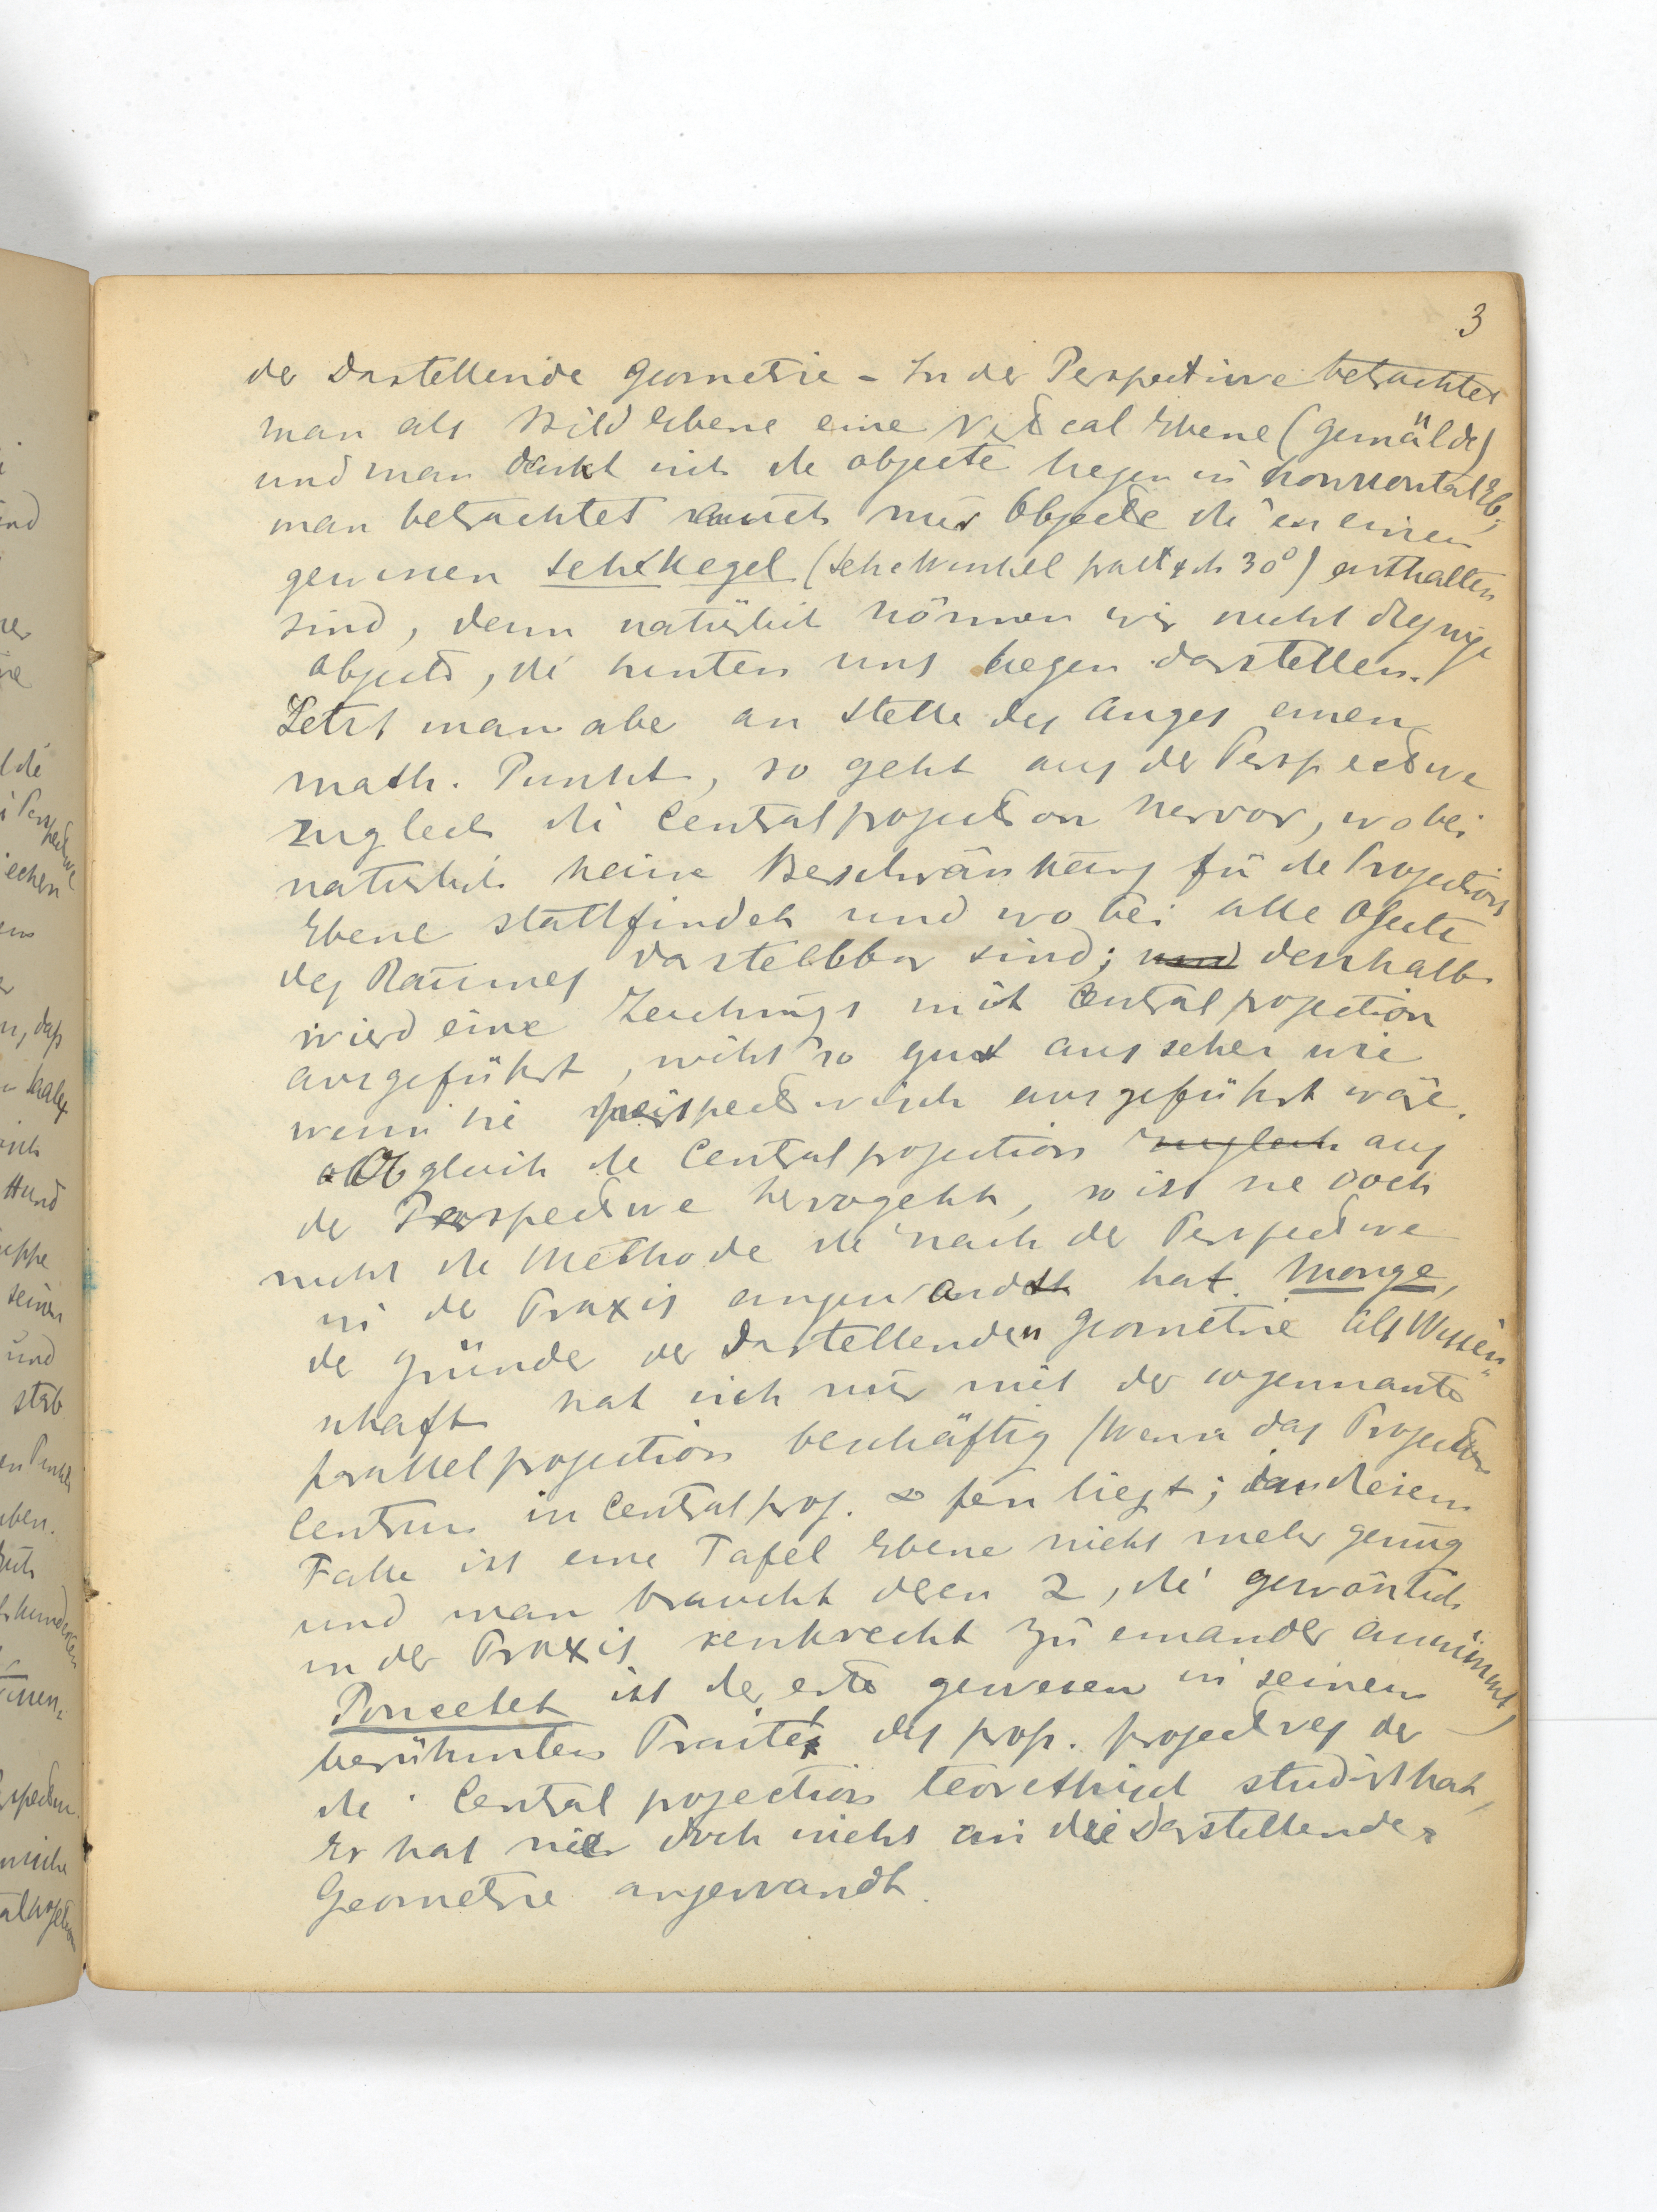 3
der Darstellende Geometrie – In der Perspective betrachtet
man als Bild Ebene eine Vertical Ebene (Gemälde)
und man denkt sich die objecte liegen in horizontal Eb.,
man betrachtet auch nur Objecte die in einen
gewissen Sehkegel (Sehewinkel praktisch 30°) enthalten
sind, denn natürlich können wir nicht diejenige
objects, die hinten uns liegen darstellen.
Setzt man aber an Stelle des Auges einen
math. Punkt, so geht aus der Perspective
zugleich die Centralprojection hervor, wobei
natürlich keine Beschränkung für die Projections
Ebene stattfindet und wobei alle Objecte
des Raumes darstellbar sind; und deshalb
wird eine Zeichnungs mit Centralprojection
ausgeführt, nicht so gut aussehen wie
wenn sie perspectivisch ausgeführt wäre.
Obgleich die Centralprojection zugleich aus
der Perspective hervogeht, so ist sie doch
nicht die Methode die nach der Perspective
in der Praxis angewandt hat. Monge,
der Gründer der Darstellenden Geometrie als Wissen
schaft hat sich nur mit der sogennante
parallelprojection beschäftig (Wenn das Projection
Centrum in Centralproj. ∞ fern liegt; in diesem
Falle ist eine Tafel Ebene nicht mehr genug
und man braucht deren 2, die gewönlich
in der Praxis senkrecht zu einander annimmt,
Poncelet ist der erste gewesen in seinem
berühmten Traité des prop. projectives der
die Central projection teorethisch studirt hat,
Er hat sie doch nicht an die Darstellende
Geometrie angewandt.